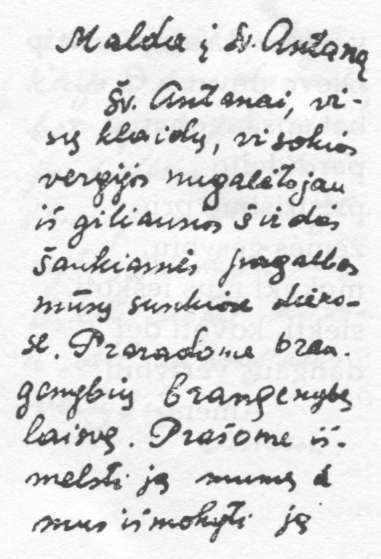 Malda į šv. Antaną
Šv. Antanai, vi-
sų klaidų, visokios
vergijos nugalėtojau
iš giliausios širdies
šaukiamės pagalbos
mūsų sunkiose dieno-
se. Praradome bran-
genybių brangenybę
laisvę. Prašome iš-
melsti ją mums ir
mus išmokyti ją